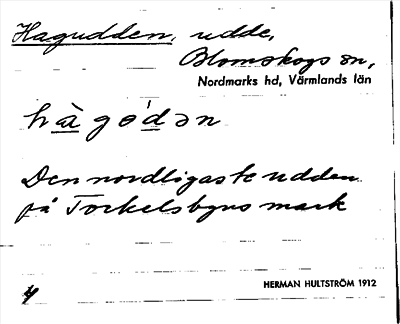 Hagudden, udde,
Blomskogs sn,
Nordmarks hd, Värmlands län
hàgo'dən
Den nordligaste udden
på Torkelsbyns mark
HERMAN HULTSTRÖM 1912